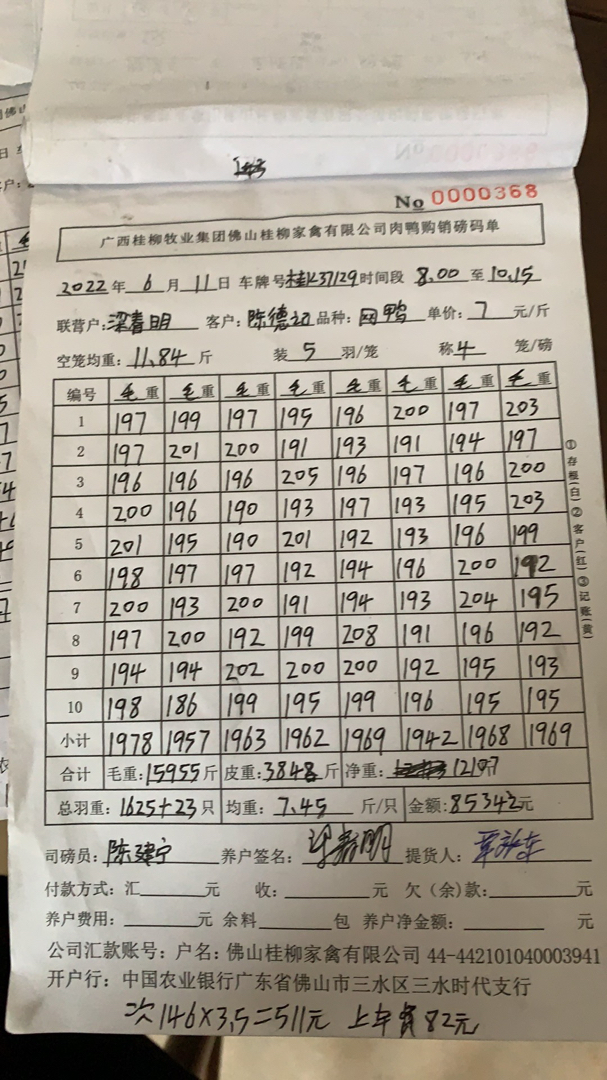 No 0000368
广西桂柳牧业集团佛山桂柳家禽有限公司肉鸭购销磅码单
2022年 6月 11日 车牌号桂K37129时间段 8.00 至 10.15
联营户:梁青明 客户:陈德 品种: 鸭 单价:7 元/斤
空笼均重:11.84 斤 装 5 羽/笼 称 4 笼/磅
编号 毛重 毛重 毛重 毛重 毛重 毛重 毛重 毛重
1 197 199 197 195 196 200 197 203
2 197 201 200 191 193 191 194 197
3 196 196 196 205 196 197 196 200
4 200 196 190 193 197 193 195 203
5 201 195 190 201 192 193 196 199
6 198 197 197 192 194 196 200 192
7 200 193 200 191 194 193 204 195
8 197 200 192 199 208 191 196 192
9 194 194 202 200 200 192 195 193
10 198 186 199 195 199 196 195 195
小计 1978 1957 1963 1962 1969 1942 1968 1969
合计 毛重:15955斤 皮重:3848斤 净重:12107
总羽重:1625+23只 均重:7.45 斤/只 金额:85342元
司磅员:陈建宁 养户签名: 明 提货人:
付款方式:汇 元 收: 元 欠(余)款: 元
养户费用: 元 余料 包 养户净金额: 元
公司汇款账号:户名:佛山桂柳家禽有限公司 44-442101040003941
开户行:中国农业银行广东省佛山市三水区三水时代支行
次146×3.5=511元 上车费82元
①存根(白)②客户(红)③记账(黄)